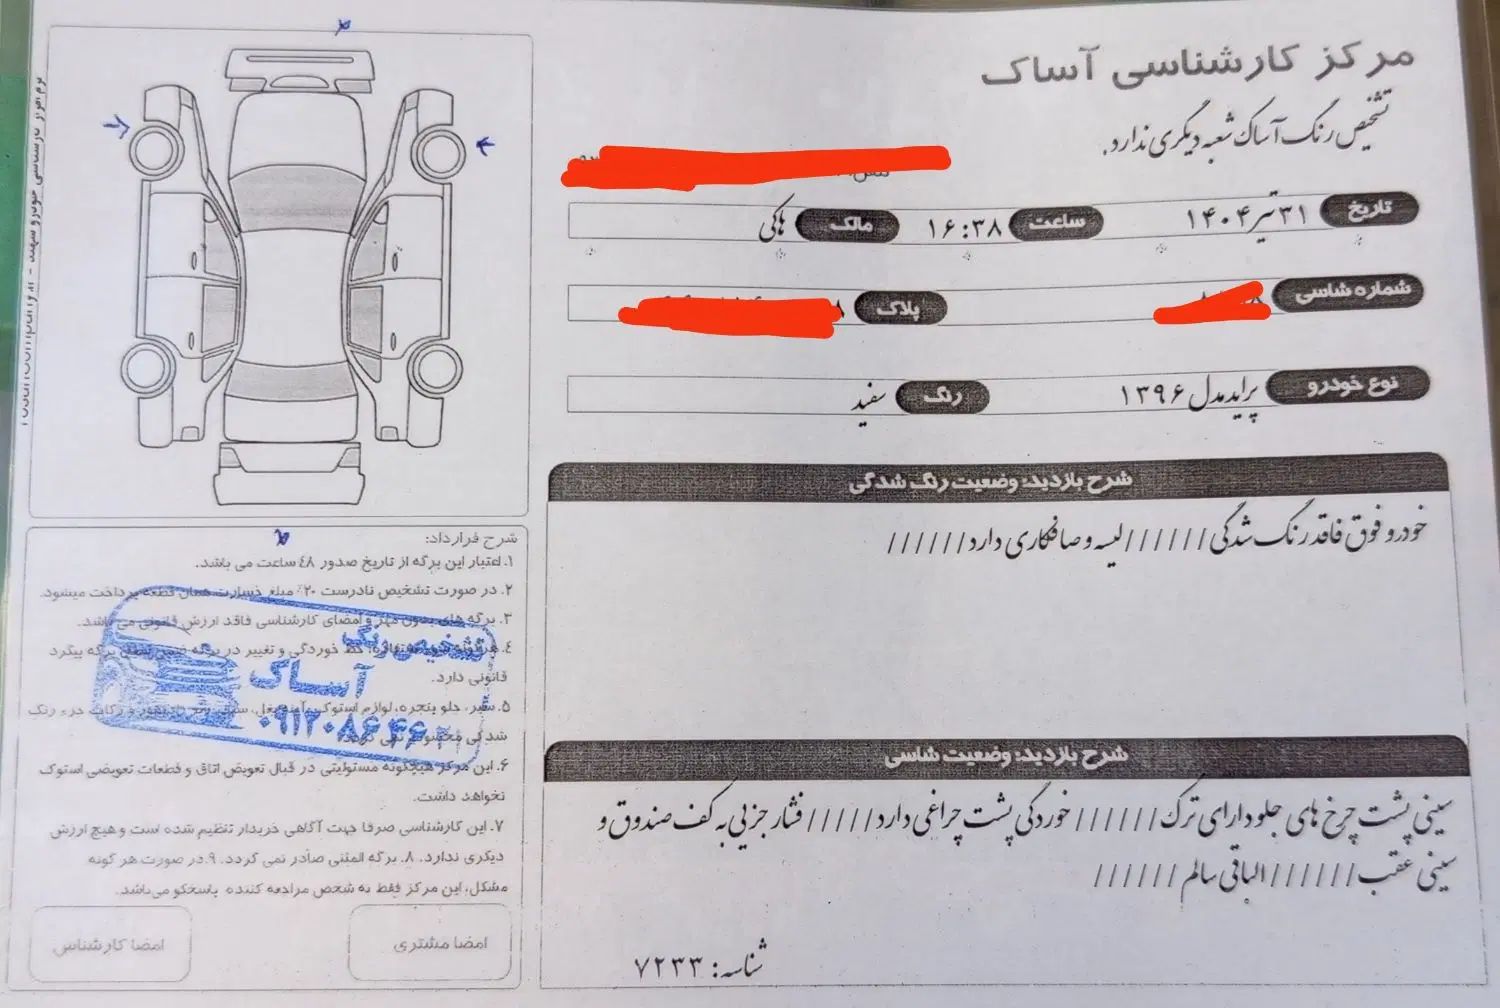 مرکز کارشناسی آساک
تشخیص رنگ آساک شعبه دیگری ندارد.
تاریخ ۳۱ تیر ۱۴۰۴ ساعت ۱۶:۳۸ مالک هاکی
شماره شاسی پلاک
نوع خودرو پراید مدل ۱۳۹۶ رنگ سفید
شرح بازدید: وضعیت رنگ شدگی
خودرو فوق فاقد رنگ شدگی//////لیسه و صافکاری دارد//////
شرح بازدید: وضعیت شاسی
سینی پشت چرخ های جلو دارای ترک//////خوردگی پشت چراغی دارد/////فشار جزیی به کف صندوق و
سینی عقب//////الباقی سالم//////
شناسه: ۷۲۳۳
شرح قرارداد:
۱. اعتبار این برگه از تاریخ صدور ۴۸ ساعت می باشد.
۲. در صورت تشخیص نادرست ۲۰٪ مبلغ خسارت همان قطعه پرداخت میشود.
۳. برگه های بدون مهر و امضای کارشناسی فاقد ارزش قانونی می باشد.
۴. هرگونه خط خوردگی و تغییر در برگه پیگرد
قانونی دارد.
۵. سپر، جلو پنجره، لوازم استوک، و رکاب جزء رنگ
شدگی محسوب نمی گردد.
۶. این مرکز هیچگونه مسئولیتی در قبال تعویض اتاق و قطعات تعویضی استوک
نخواهد داشت.
۷. این کارشناسی صرفا جهت آگاهی خریدار تنظیم شده است و هیچ ارزش
دیگری ندارد. ۸. برگه المثنی صادر نمی گردد. ۹. در صورت هر گونه
مشکل، این مرکز فقط به شخص مراجعه کننده پاسخگو می‌باشد.
تشخیص رنگ
آساک
امضا مشتری
امضا کارشناس
نرم افزار کارشناسی خودرو سهند -